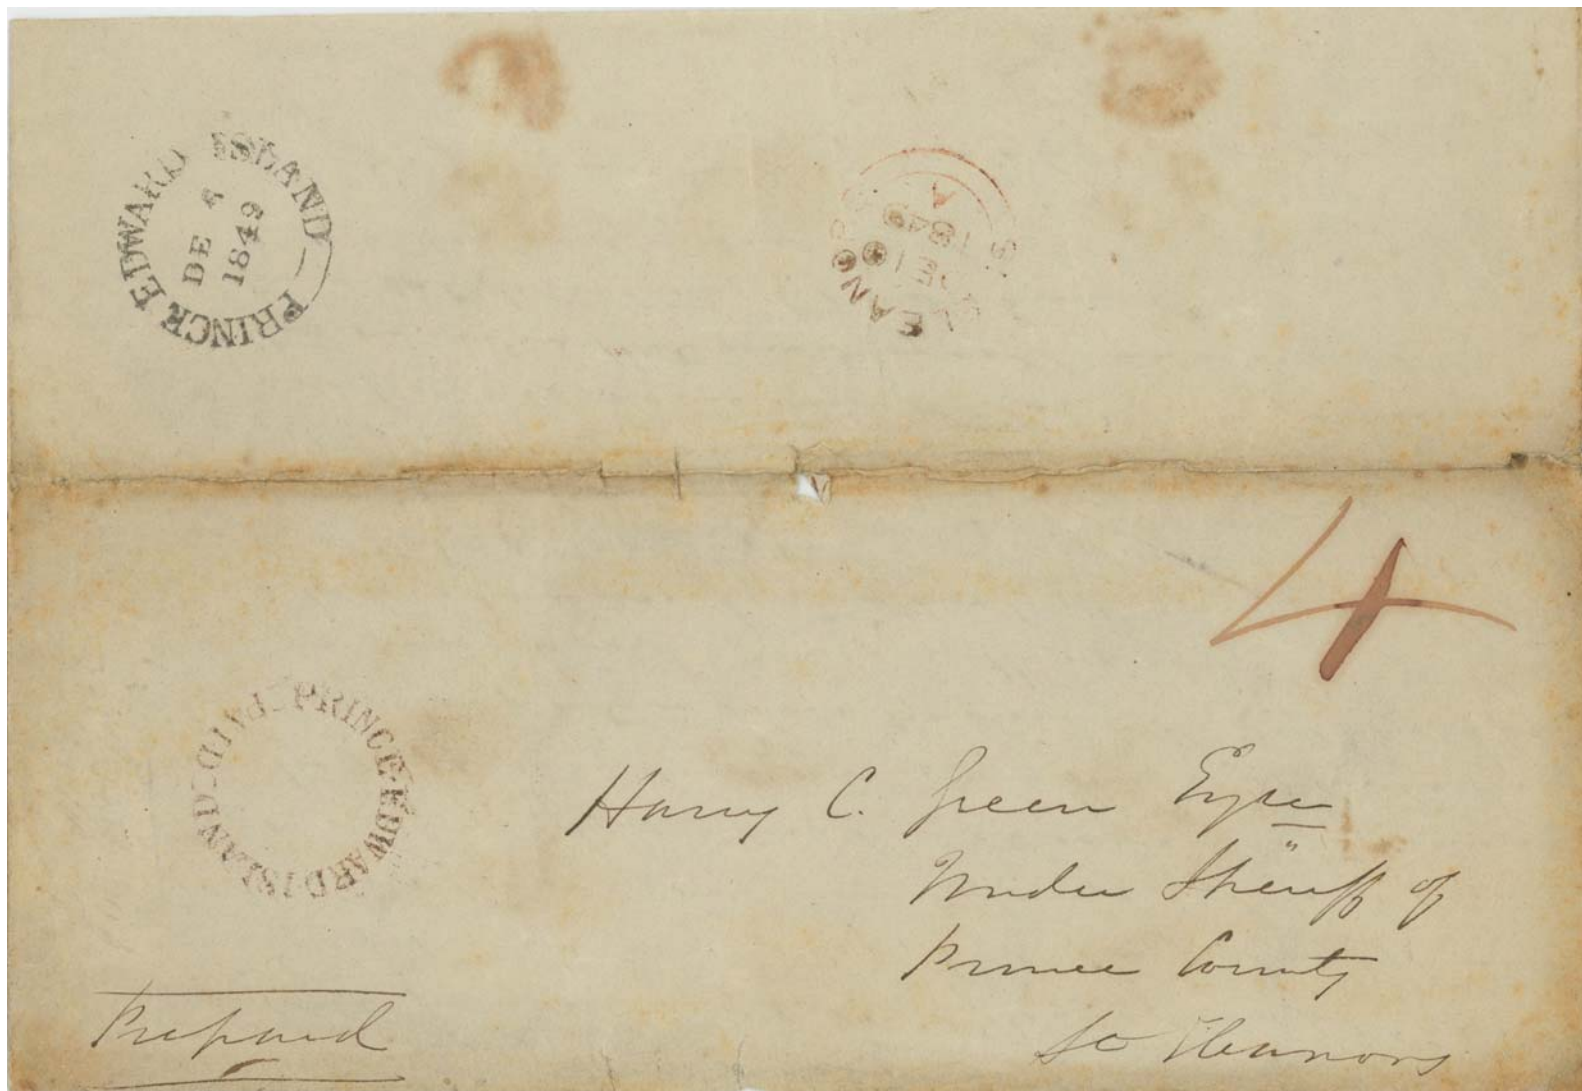 PRINCE EDWARD ISLAND
DE
1849
ST ELEANORS
A
DE 1
1849
4
PRINCE EDWARD ISLAND - PAID -
Harry C. Green Esqre
Under Sheriff of
Prince County
St Eleanors
Prepaid